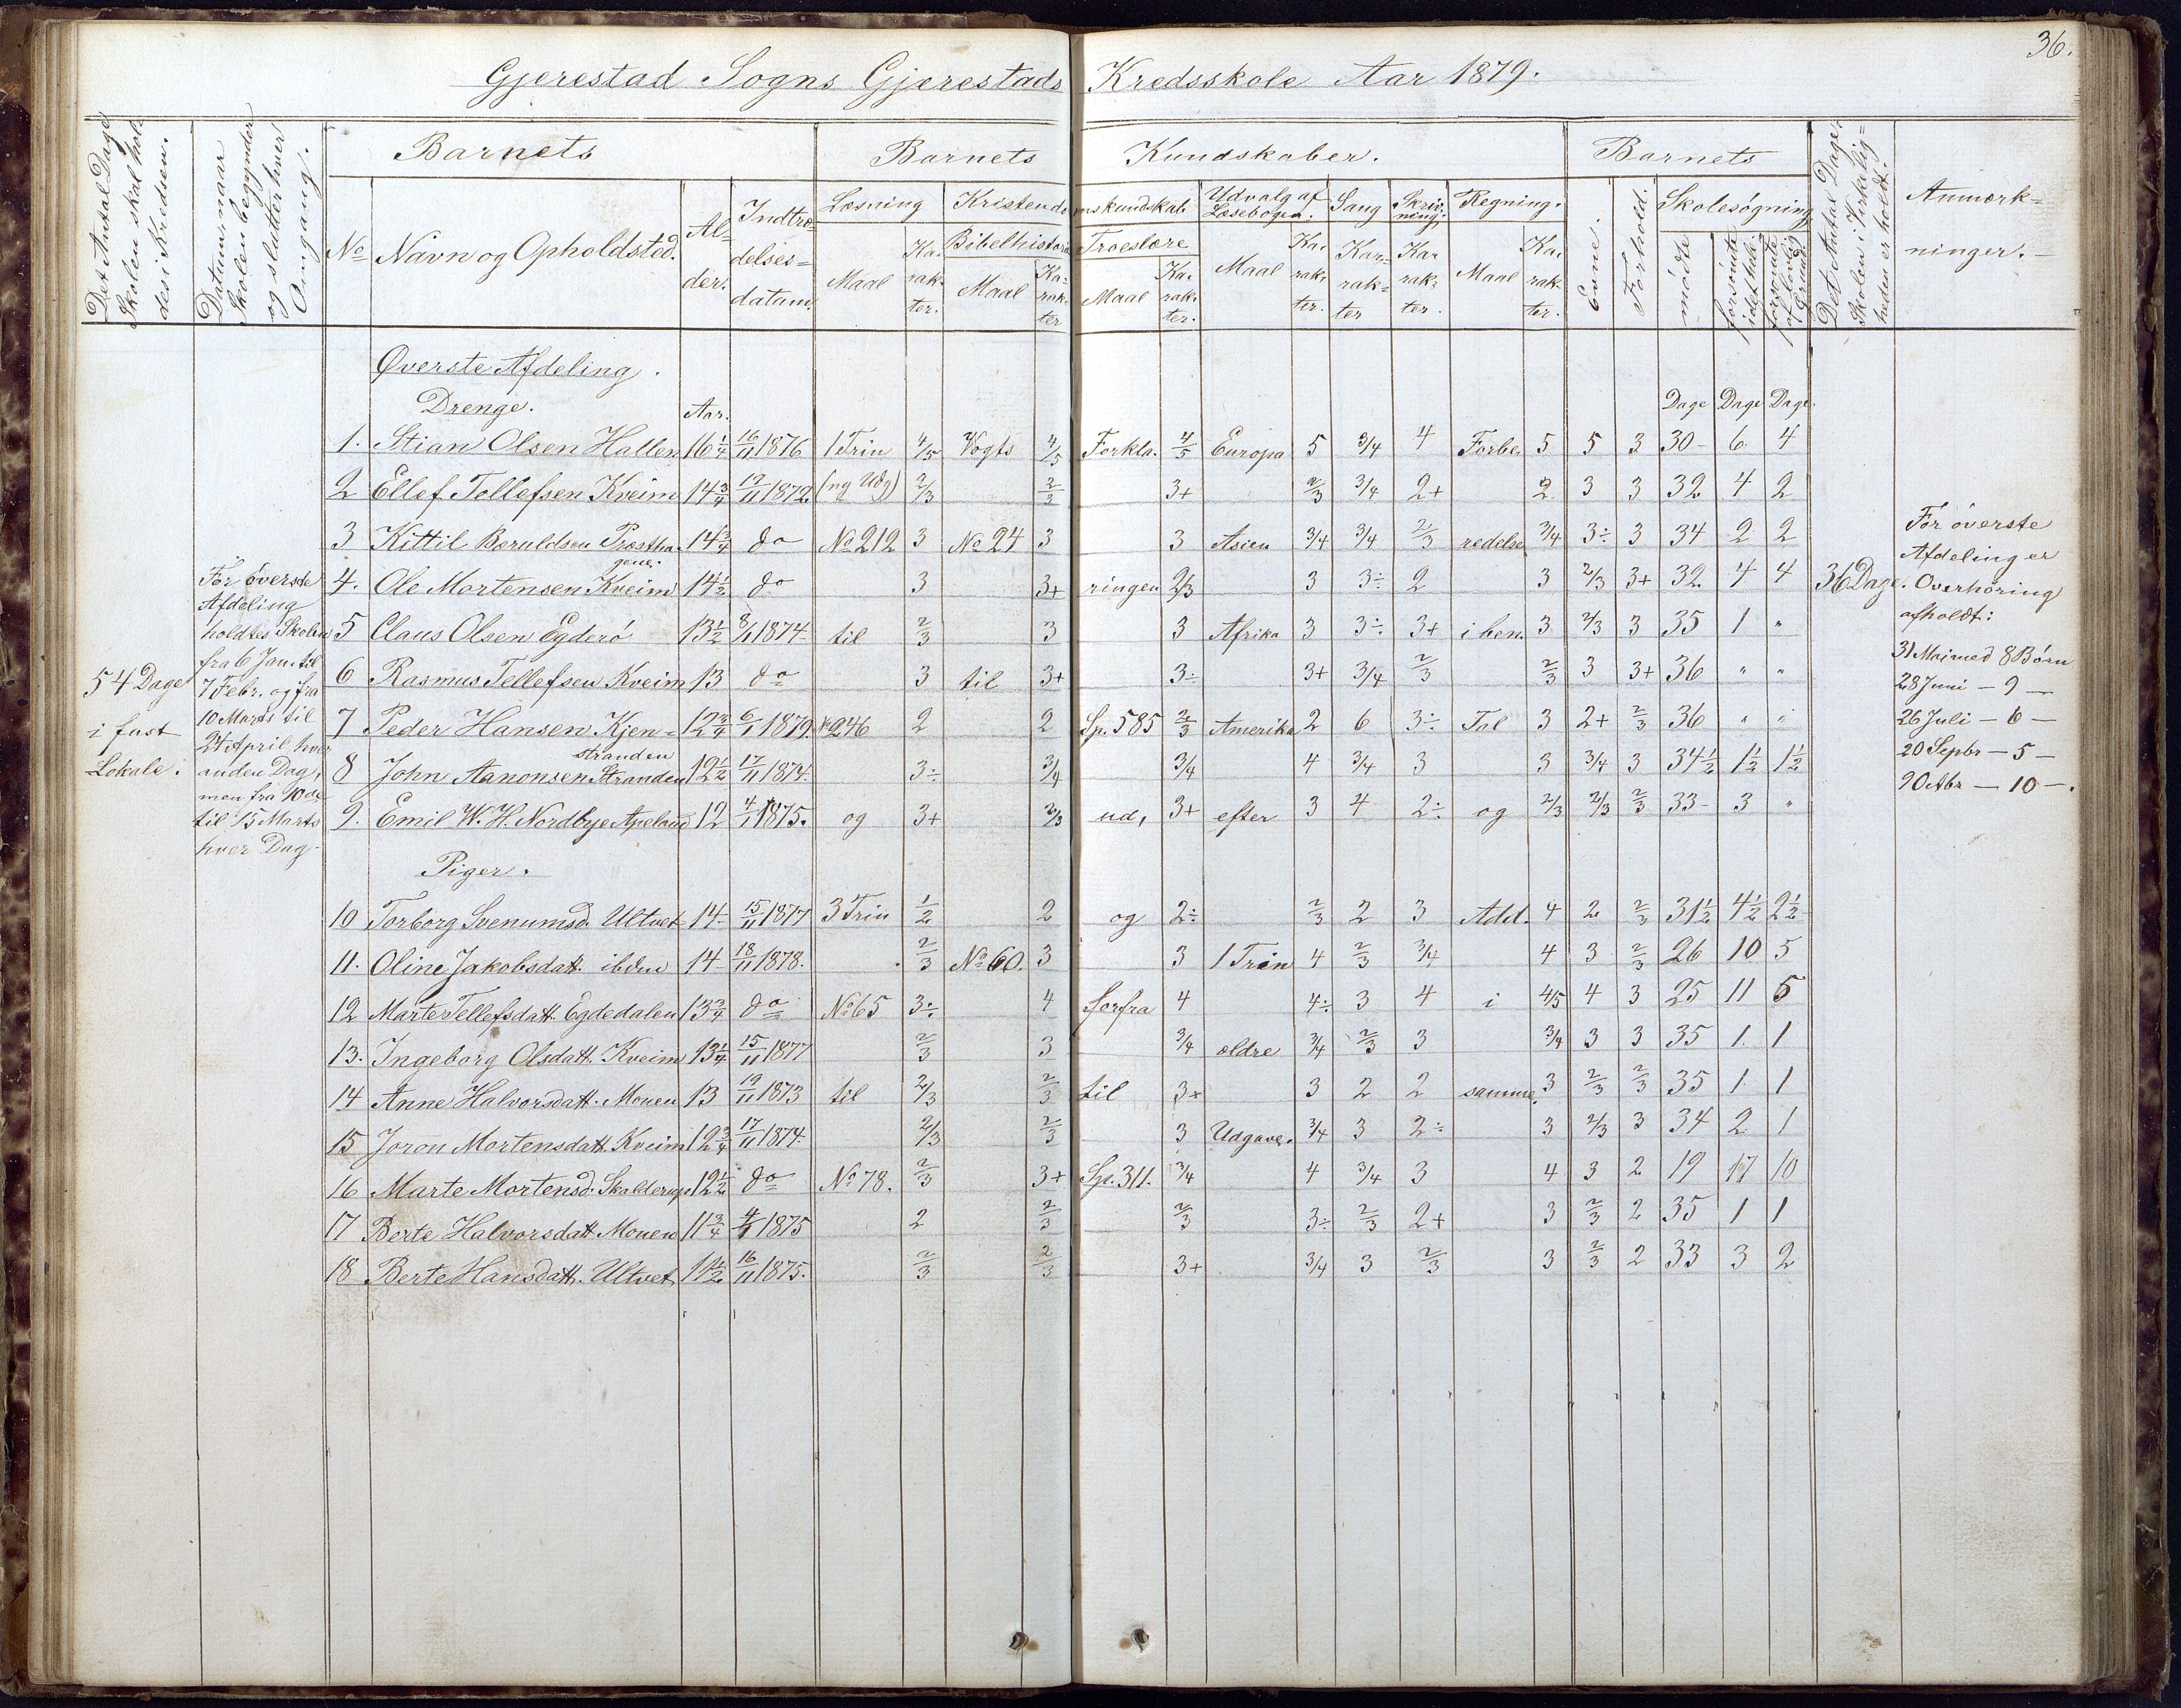 36.
Gjerestad Sogns Gjerestads Kredsskole Aar 1879.
Det Antal Dage Skolen skal holdes i Kredsen.
Datum, naar Skolen begynder og slutter hver Omgang.
Barnets
No
Navn og Opholdsted.
Alder.
Indtrædelsesdatum.
Barnets Kundskaber.
Læsning
Maal
Karakter.
Kristendomskundskab
Bibelhistorie
Maal
Karakter
Troeslære
Maal
Karakter.
Udvalg af Læsebogen.
Maal
Karakter.
Sang
Karakter
Skrivning.
Karakter.
Regning.
Maal
Karakter.
Barnets
Evne.
Forhold.
Skolesøgning
mødte
forsømte i det hele
forsømte af lovlig Grund
Det Antal Dage, Skolen i Virkeligheden er holdt.
Anmærkninger.
Øverste Afdeling.
Drenge. Aar. Dage Dage Dage
1. Stian Olsen Hallen 16 1/4 16/11 1876 1 Trin 4/5 Vogts 4/5 Forkla- 4/5 Europa 5 3/4 4 Forbe- 5 5 3 30 6 4
2 Ellef Tellefsen Kveim 14 3/4 19/11 1872 (ny Udg) 2/3 2/3 3+ 2/3 3/4 2+ 2 3 3 32 4 2
3 Kittil Beruldsen Præsthagene. 14 3/4 do No 212 3 No 24 3 3 Asien 3/4 3/4 2/3 redelse 3/4 3÷ 3 34 2 2
4. Ole Mortensen Kveim 14 1/2 do 3 3+ ringen 2/3 3 3÷ 2 3 2/3 3+ 32 4 4 36 Dage.
5 Claus Olsen Egderö 13 1/2 8/1 1874 til 2/3 3 3 Afrika 3 3÷ 3+ i ben. 3 2/3 3 35 1 "
6 Rasmus Tellefsen Kveim 13 do 3 til 3+ 3÷ 3+ 3/4 2/3 2/3 3 3+ 36 " "
7 Peder Hansen Kjenstranden 12 3/4 6/1 1879. No 246 2 2 Sp. 585 2/3 Amerika 2 6 3÷ Tal 3 2+ 2/3 36 " "
8 John Aanonsen Stranden 12 1/2 17/11 1874. 3÷ 3/4 3/4 4 3/4 3 3 3/4 3 34 1/2 1 1/2 1 1/2
9. Emil W. H. Nordbye Apeland 12 4/1 1875. og 3+ 2/3 ud, 3+ efter 3 4 2÷ og 2/3 2/3 2/3 33 3 "
Piger.
10 Torborg Svenumsd. Ultvet 14 15/11 1877 3 Trin 1/2 2 og 2÷ 2/3 2 3 Add. 4 2 2/3 31 1/2 4 1/2 2 1/2
11. Oline Jakobsdatt. ibden 14 18/11 1878. 2/3 No 60. 3 3 1 Trin 4 2/3 3/4 4 3 2/3 26 10 5
12 Marte Tellefsdatt. Egdedalen 13 3/4 do No 65 3÷ 4 forfra 4 4÷ 3 4 i 4/5 4 3 25 11 5
13. Ingeborg Olsdatt. Kveim 13 1/4 15/11 1877 2/3 3 3/4 ældre 3/4 2/3 3 3/4 3 3 35 1 1
14 Anne Halvorsdatt. Mouen 13 19/11 1873 til 2/3 2/3 til 3+ 3 2 2 samme. 3 2/3 2/3 35 1 1
15 Joron Mortensdatt. Kveim 12 3/4 17/11 1874. 2/3 2/3 3 Udgave. 3/4 3 2÷ 3 2/3 3 34 2 1
16 Marte Mortensd. Skalderup 12 1/2 do No 78. 2/3 3+ Sp. 311. 3/4 4 3/4 3 4 3 2 19 17 10
17 Berte Halvorsdatt. Mouen 11 3/4 4/1 1875 2 2/3 2/3 3÷ 2/3 2+ 3 2/3 2 35 1 1
18 Berte Hansdatt. Ultvet 11 1/2 16/11 1875. 2/3 2/3 3+ 3/4 3 2/3 3 2/3 2 33 3 2
54 Dage
i fast
Lokale.
For øverste
Afdeling
holdtes Skolen
fra 6 Jan. til
7 Febr. og fra
10 Marts til
24 April hver
anden Dag,
men fra 10de
til 15 Marts
hver Dag.
For øverste
Afdeling er
Overhøring
afholdt:
31 Mai med 8 Børn
28 Juni — 9 —
26 Juli — 6 —
20 Sepbr — 5 —
— 10 —.